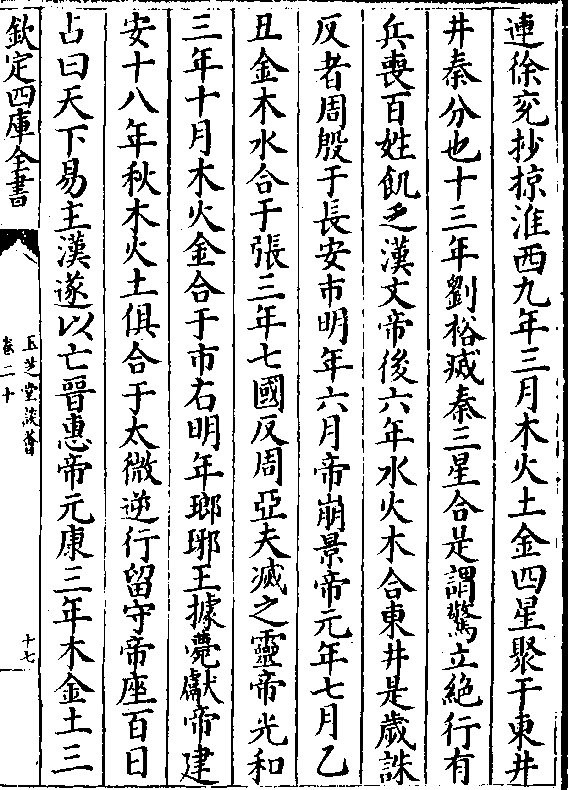 連徐兖抄掠淮西九年三月木火土金四星聚于東井
井秦分也十三年劉裕㓕秦三星合是謂驚立絶行有
兵喪百姓飢乏漢文帝後六年水火木合東井是歲誅
反者周殷于長安市明年六月帝崩景帝元年七月乙
丑金木水合于張三年七國反周亞夫滅之靈帝光和
三年十月木火金合于市右明年瑯琊王據薨獻帝建
安十八年秋木火土俱合于太微逆行留守帝座百日
占曰天下易主漢遂以亡晉惠帝元康三年木金土三
欽定四庫全書
玉芝堂談薈
卷二十
十七